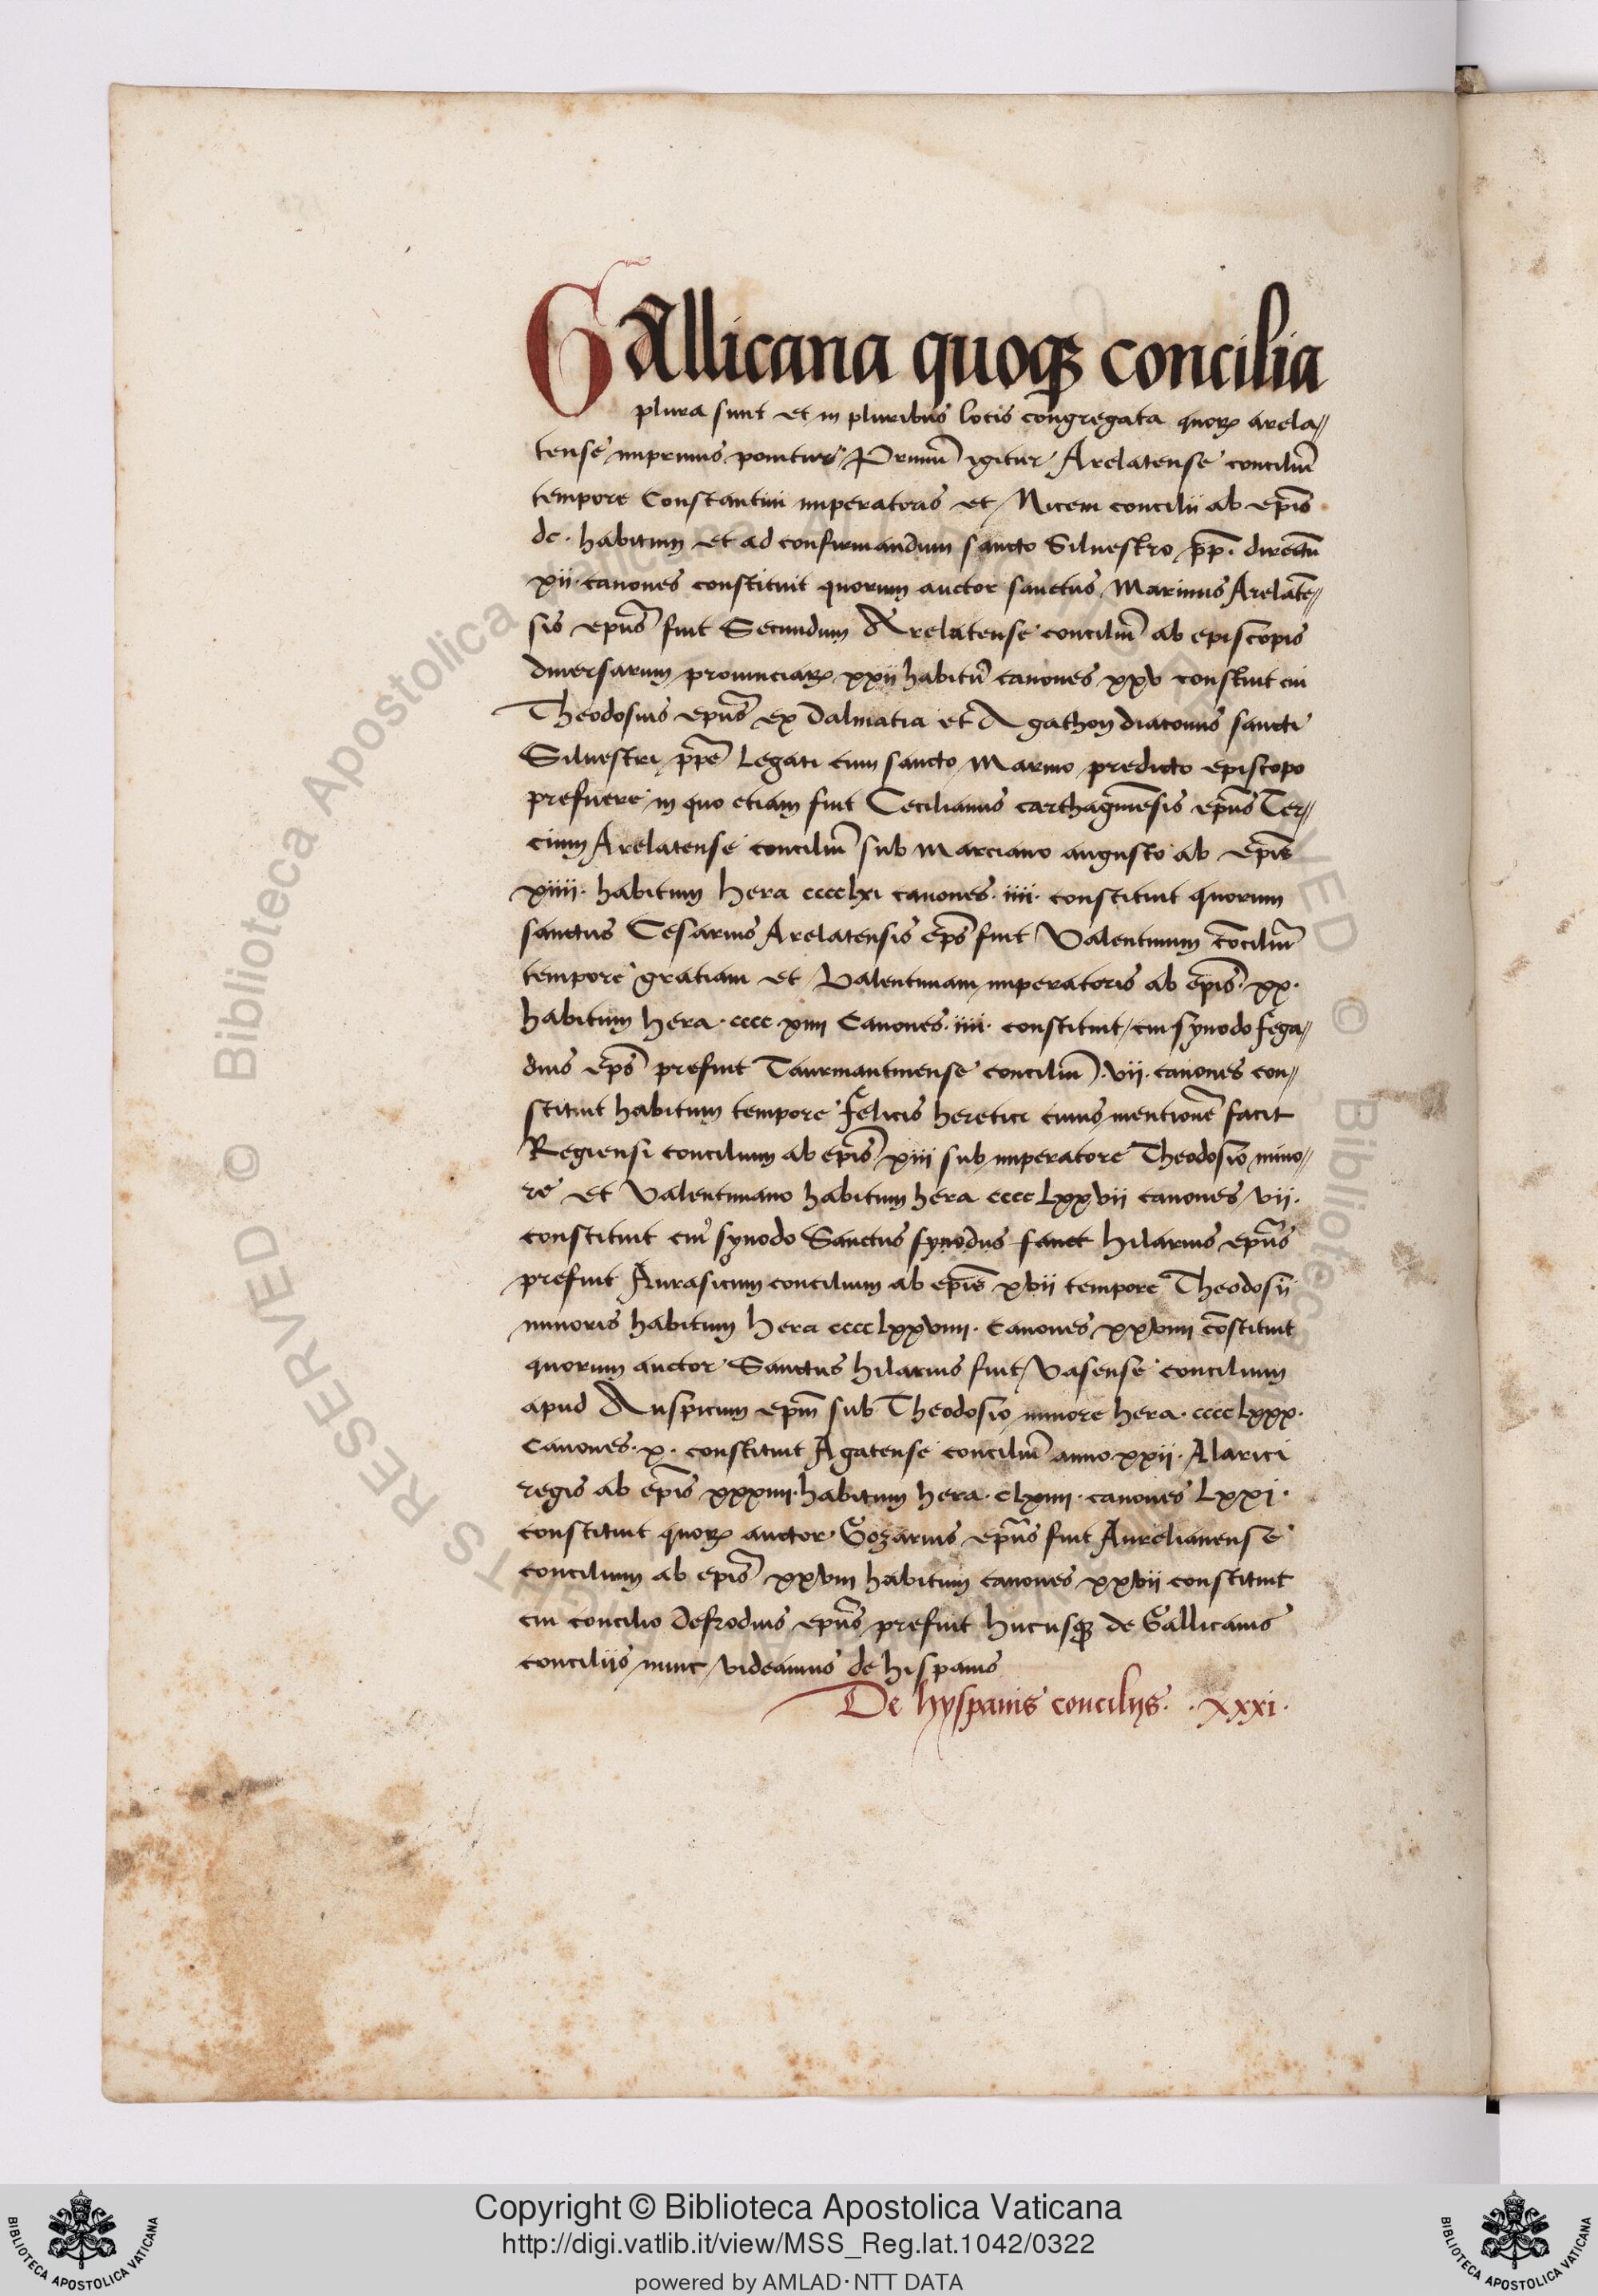 Gallicana quoqꝫ concilia
plura sunt et in pluribus locis congregata quoꝝ arela//
tense imprimis ponitur Primū igitur Arelatense conciliū
tempore Constantini imperatoris et Niceni concilii ab ep̄is
dc · habitum et ad confirmandum sancto Siluestro p̄p̄ · directū
xii · canones constituit quorum auctor sanctus Marinus Arelatē//
sis ep̄us fuit Secundum Arelatense conciliū ab episcopis
diuersarum prouinciaꝝ xxii habitū canones xxv constuit cui
Theodosius ep̄us ex Dalmatia et Agathon diaconus sancti
Siluestri p̄pe Legati cum sancto Marino predicto episcopo
prefuere in quo etiam fuit Cecilianus carthaginēsis ep̄us Ter//
cium Arelatense conciliū sub Marciano augusto ab ep̄is
xiiii · habitum hera cccclxi canones · iiii · constituit quorum
sanctus Cesarius Arelatensis ep̄s fuit Valentinum cōciliū
tempore gratiani et Valentiniani imperatoris ab ep̄is · xx ·
habitum hera · cccc · xiiii Canones · iiii · constituit cui synodo fega//
dius ep̄s prefuit Taurinantinense conciliū · vii · canones con//
stituit habitum tempore Felicis heretici cuius mentionē facit
Regiensi concilium ab ep̄is xiii sub imperatore Theodosio mino//
re et Valentiniano habitum hera cccc Lxxvii canones vii ·
constituit cui synodo Sanctus synodus sanct hilarius ep̄us
prefuit Aurasicum concilium ab ep̄is xvii tempore Theodosii
minoris habitum hera cccc Lxxviiii · canones xxviiii cōstituit
quorum auctor Sanctus hilarius fuit Vasense concilium
apud Auspicium ep̄m sub Theodosio minore hera · cccc Lxxx ·
Canones · x · constituit Agatense conciliū anno xxii · Alarici
regis ab ep̄is xxxiiii · habitum hera · clxiiii · canones Lxxi ·
constituit quoꝝ auctor Gozarius ep̄us fuit Aurelianense
concilium ab ep̄is xxviii habitum canones xxvii constituit
cui concilio Defrodius ep̄us prefuit hucusqꝫ de Gallicanis
conciliis nunc videamus de hispanis
De hyspanis concilijs · · xxxi ·
Copyright © Biblioteca Apostolica Vaticana
http://digi.vatlib.it/view/MSS_Reg.lat.1042/0322
powered by AMLAD·NTT DATA
BIBLIOTECA APOSTOLICA VATICANA
BIBLIOTECA APOSTOLICA VATICANA